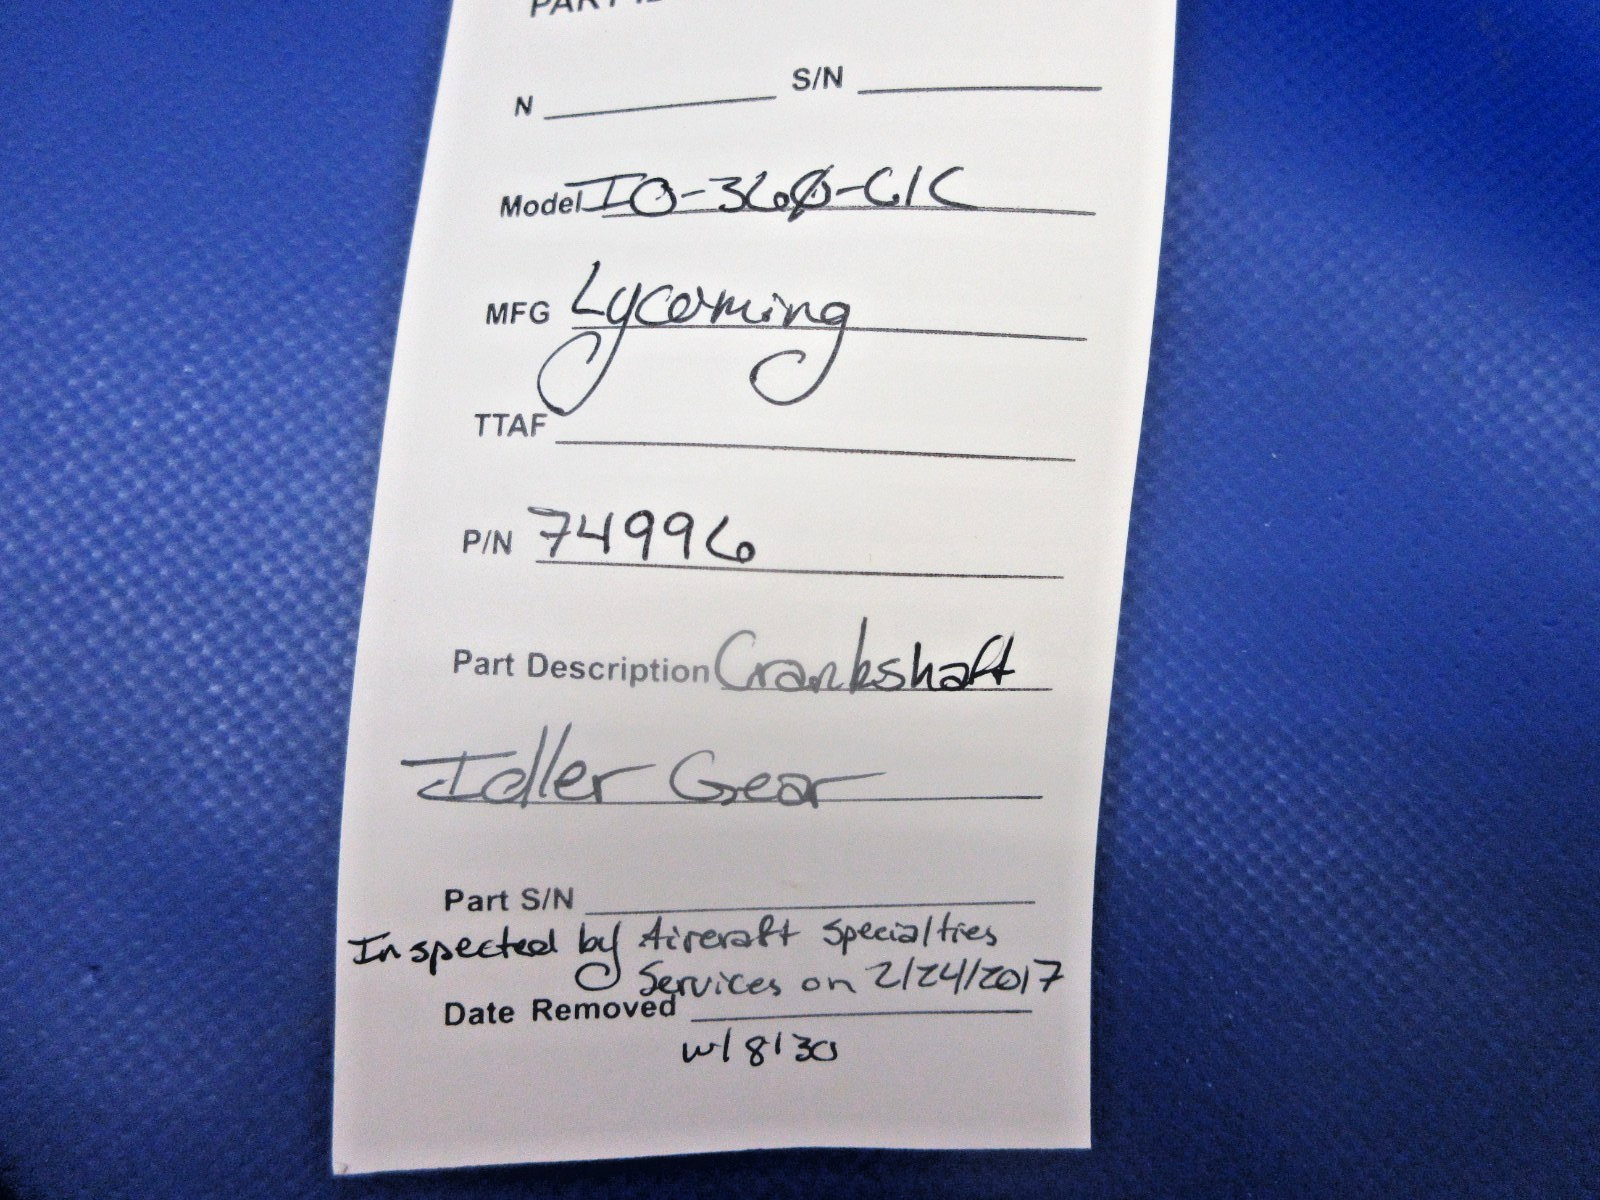 PART
N S/N
Model IO-360-C1C
MFG Lycoming
TTAF
P/N 74996
Part Description Crankshaft
Idler Gear
Part S/N
Inspected by Aircraft Specialties
Services on 2/24/2017
Date Removed
w/ 8130